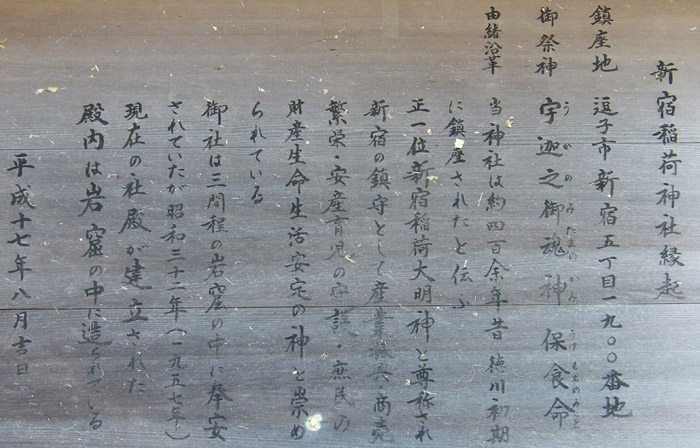 新宿稲荷神社縁起
鎮座地 逗子市新宿五丁目一九〇〇番地
御祭神 宇迦之御魂神 保食命
うがのみたまのかみ うけもちのみこと
由緒沿革 当神社は約四百余年昔 徳川初期
に鎮座されたと伝ふ
正一位新宿稲荷大明神と尊称され
新宿の鎮守として産業振興・商売
繁栄・安産育児の守護・庶民の
財産生命生活安定の神と崇め
られている
御社は三間程の岩窟の中に奉安
されていたが昭和三十二年(一九五七年)
現在の社殿が建立された
殿内は岩窟の中に造られている
平成十七年八月吉日